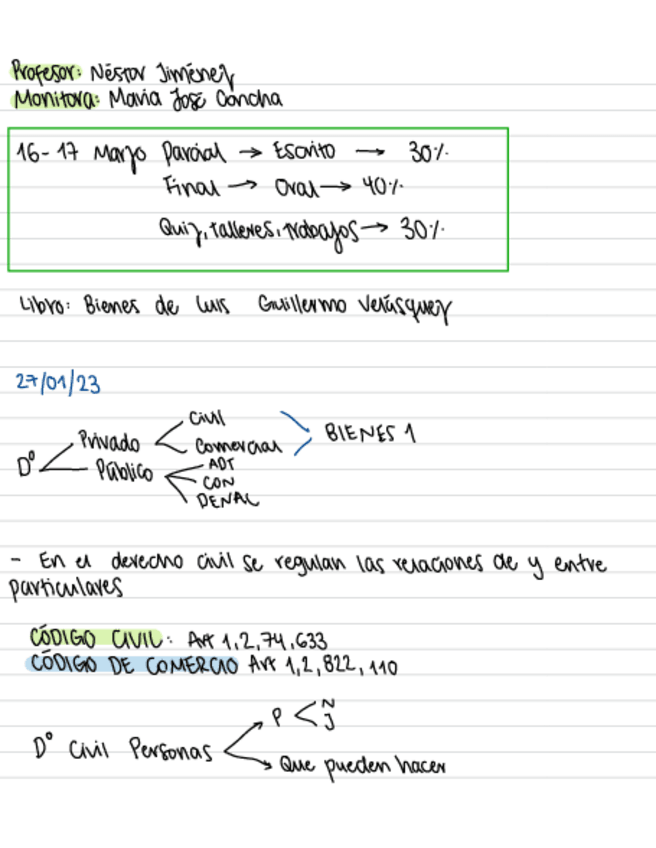 Profesor: Néstor Jiménez
Monitora: María José Concha
16-17 Marzo Parcial → Escrito → 30%.
Final → Oral → 40%.
Quiz, talleres, trabajos → 30%.
Libro: Bienes de Luis Guillermo Velásquez
27/01/23
D° Privado Civil
Comercial BIENES 1
Público ADT
CON
PENAL
- En el derecho civil se regulan las relaciones de y entre
particulares
CÓDIGO CIVIL: Art 1,2,74,633
CÓDIGO DE COMERCIO Art 1,2,822,110
D° Civil Personas P < N
J
Que pueden hacer